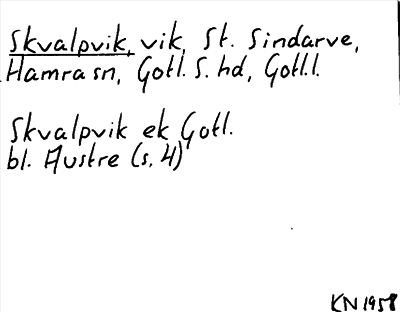 Skvalpvik, vik, St. Sindarve,
Hamra sn, Gotl. S. hd, Gotl.l.
Skvalpvik ek Gotl.
bl. Austre (s. 4)
KN 1958